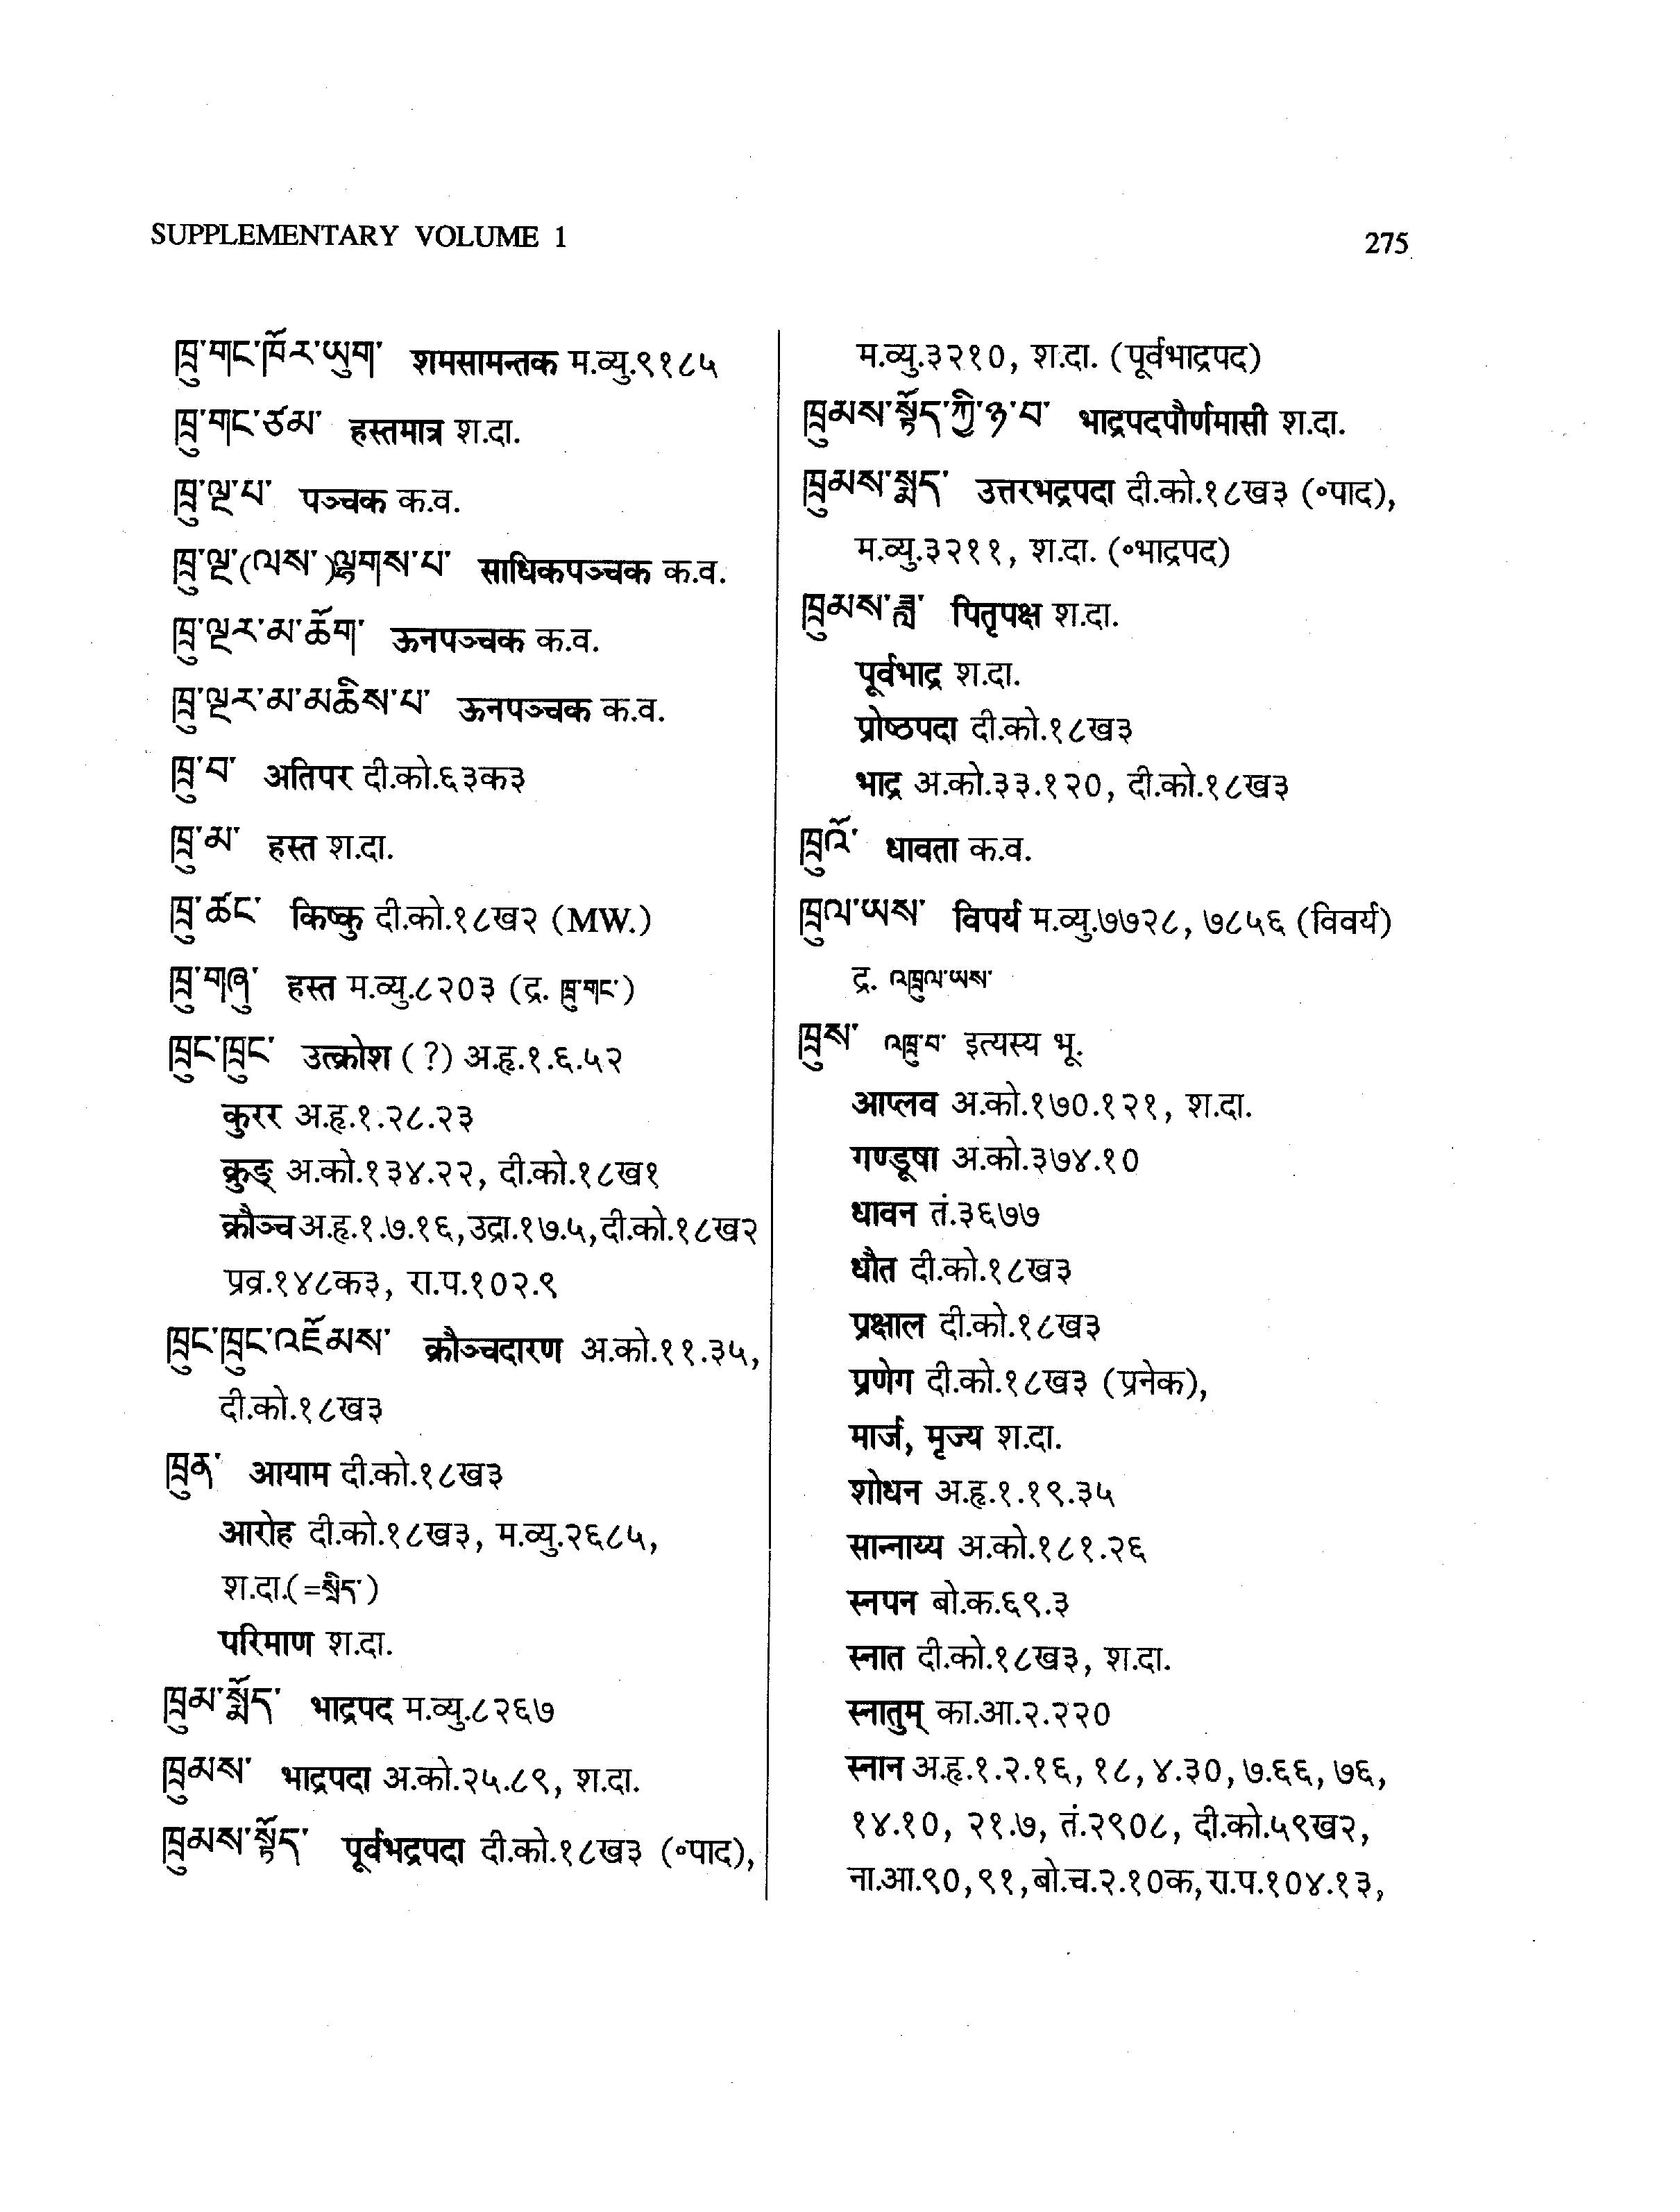 SUPPLEMENTARY VOLUME 1
275
ཁྲུ་གང་ཁོར་ཡུག་ शमसामन्तक म.व्यु.९१८५
ཁྲུ་གང་ཙམ་ हस्तमात्र श.दा.
ཁྲུ་ལྔ་པ་ पञ्चक क.व.
ཁྲུ་ལྔ་(ལས་)ལྷགས་པ་ साधिकपञ्चक क.व.
ཁྲུ་ལྔར་མ་ཆོག་ ऊनपञ्चक क.व.
ཁྲུ་ལྔར་མ་མཆིས་པ་ ऊनपञ्चक क.व.
ཁྲུ་བ་ अतिपर दी.को.६३क३
ཁྲུ་མ་ हस्त श.दा.
ཁྲུ་ཚང་ किष्कु दी.को.१८ख२ (MW.)
ཁྲུ་གཞུ་ हस्त म.व्यु.८२०३ (द्र. ཁྲུ་གང་)
ཁྲུང་ཁྲུང་ उत्क्रोश (?) अ.हृ.१.६.५२
कुरर अ.हृ.१.२८.२३
क्रुङ् अ.को.१३४.२२, दी.को.१८ख१
क्रौञ्च अ.हृ.१.७.१६, उद्रा.१७.५, दी.को.१८ख२
प्रव्र.१४८क३, रा.प.१०२.९
ཁྲུང་ཁྲུང་འཇོམས་ क्रौञ्चदारण अ.को.११.३५,
दी.को.१८ख३
ཁྲུན་ आयाम दी.को.१८ख३
आरोह दी.को.१८ख३, म.व्यु.२६८५,
श.दा.(=སྲིད་)
परिमाण श.दा.
ཁྲུམ་སྨོད་ भाद्रपद म.व्यु.८२६७
ཁྲུམས་ भाद्रपदा अ.को.२५.८९, श.दा.
ཁྲུམས་སྟོད་ पूर्वभद्रपदा दी.को.१८ख३ (॰पाद),
म.व्यु.३२१०, श.दा. (पूर्वभाद्रपद)
ཁྲུམས་སྟོད་ཀྱི་ཉ་བ་ भाद्रपदपौर्णमासी श.दा.
ཁྲུམས་སྨད་ उत्तरभद्रपदा दी.को.१८ख३ (॰पाद),
म.व्यु.३२११, श.दा. (॰भाद्रपद)
ཁྲུམས་ཟླ་ पितृपक्ष श.दा.
पूर्वभाद्र श.दा.
प्रोष्ठपदा दी.को.१८ख३
भाद्र अ.को.३३.१२०, दी.को.१८ख३
ཁྲུའོ་ धावता क.व.
ཁྲུལ་ཡས་ विपर्य म.व्यु.७७२८, ७८५६ (विवर्य)
द्र. འཁྲུལ་ཡས་
ཁྲུས་ འཁྲུ་བ་ इत्यस्य भू.
आप्लव अ.को.१७०.१२१, श.दा.
गण्डूषा अ.को.३७४.१०
धावन तं.३६७७
धौत दी.को.१८ख३
प्रक्षाल दी.को.१८ख३
प्रणेग दी.को.१८ख३ (प्रनेक),
मार्ज, मृज्य श.दा.
शोधन अ.हृ.१.१९.३५
सान्नाय्य अ.को.१८१.२६
स्नपन बो.क.६९.३
स्नात दी.को.१८ख३, श.दा.
स्नातुम् का.आ.२.२२०
स्नान अ.हृ.१.२.१६, १८, ४.३०, ७.६६, ७६,
१४.१०, २१.७, तं.२९०८, दी.को.५९ख२,
ना.आ.९०, ९१, बो.च.२.१०क, रा.प.१०४.१३,